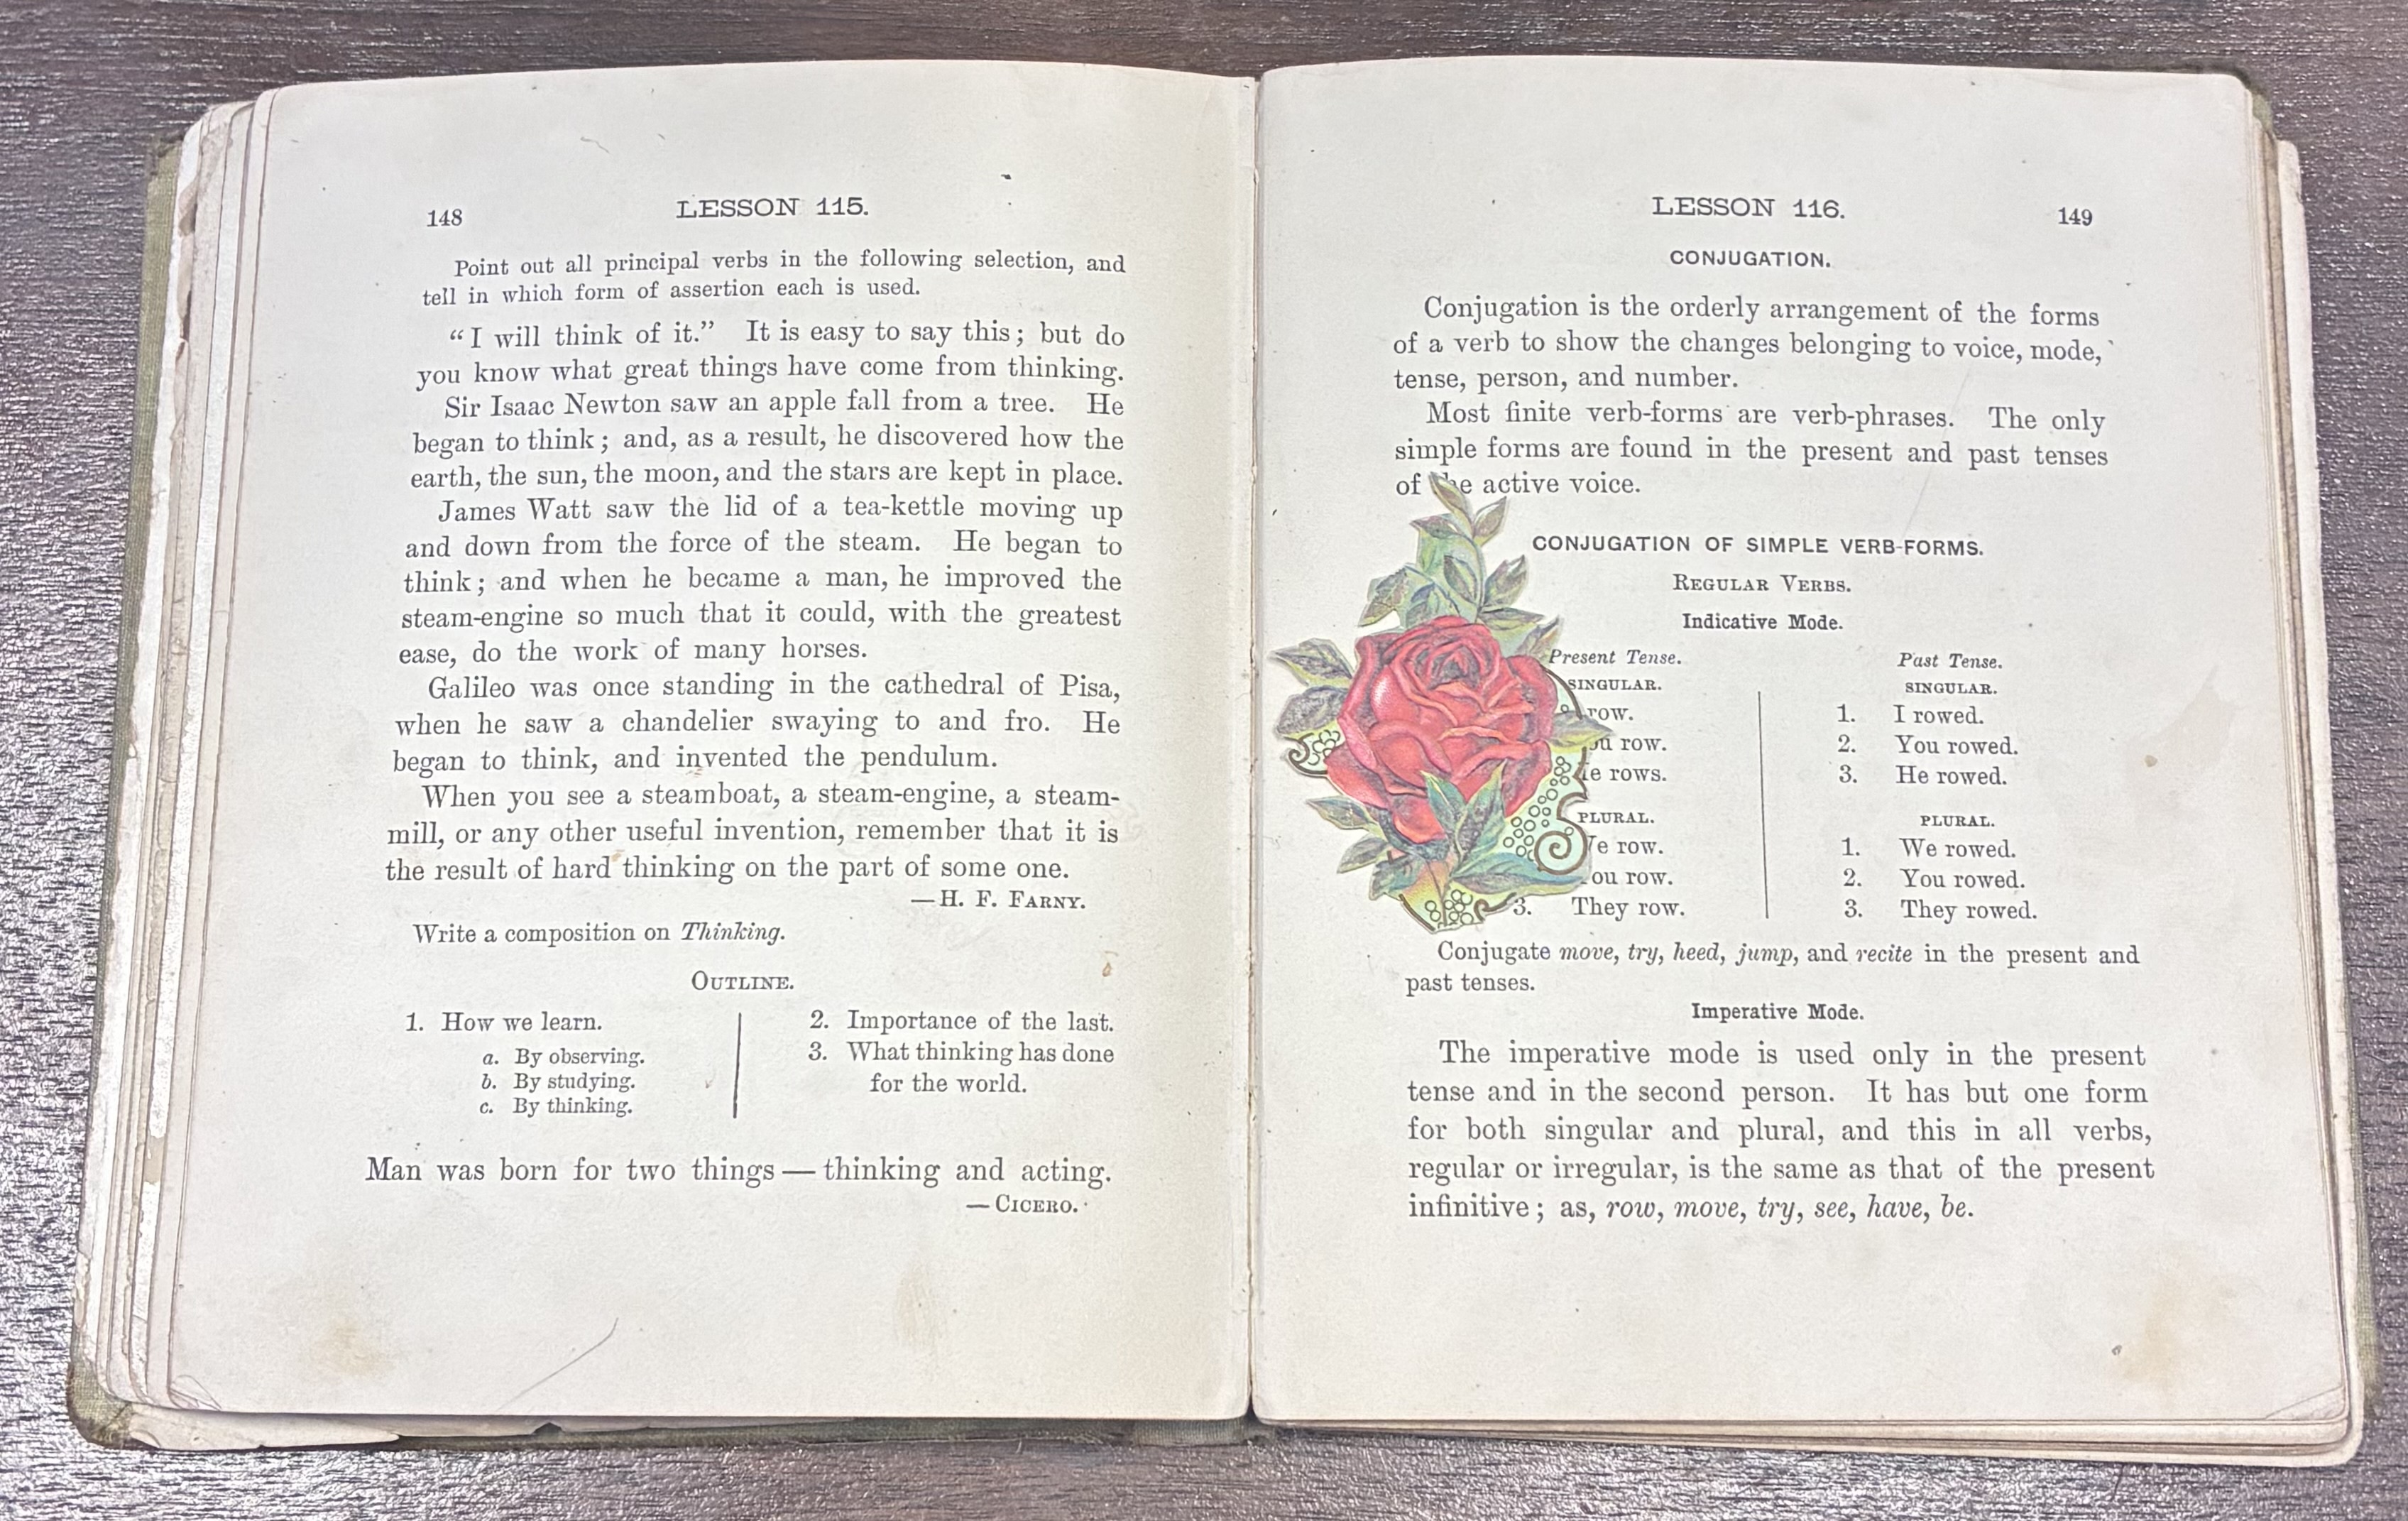 148
LESSON 115.
Point out all principal verbs in the following selection, and
tell in which form of assertion each is used.
“I will think of it.” It is easy to say this; but do
you know what great things have come from thinking.
Sir Isaac Newton saw an apple fall from a tree. He
began to think; and, as a result, he discovered how the
earth, the sun, the moon, and the stars are kept in place.
James Watt saw the lid of a tea-kettle moving up
and down from the force of the steam. He began to
think; and when he became a man, he improved the
steam-engine so much that it could, with the greatest
ease, do the work of many horses.
Galileo was once standing in the cathedral of Pisa,
when he saw a chandelier swaying to and fro. He
began to think, and invented the pendulum.
When you see a steamboat, a steam-engine, a steam-
mill, or any other useful invention, remember that it is
the result of hard thinking on the part of some one.
—H. F. FARNY.
Write a composition on Thinking.
OUTLINE.
1. How we learn.
a. By observing.
b. By studying.
c. By thinking.
2. Importance of the last.
3. What thinking has done
for the world.
Man was born for two things—thinking and acting.
—CICERO.
LESSON 116.
149
CONJUGATION.
Conjugation is the orderly arrangement of the forms
of a verb to show the changes belonging to voice, mode,
tense, person, and number.
Most finite verb-forms are verb-phrases. The only
simple forms are found in the present and past tenses
of the active voice.
CONJUGATION OF SIMPLE VERB-FORMS.
REGULAR VERBS.
Indicative Mode.
Present Tense.
SINGULAR.
row.
row.
rows.
PLURAL.
row.
row.
3. They row.
Past Tense.
SINGULAR.
1. I rowed.
2. You rowed.
3. He rowed.
PLURAL.
1. We rowed.
2. You rowed.
3. They rowed.
Conjugate move, try, heed, jump, and recite in the present and
past tenses.
Imperative Mode.
The imperative mode is used only in the present
tense and in the second person. It has but one form
for both singular and plural, and this in all verbs,
regular or irregular, is the same as that of the present
infinitive; as, row, move, try, see, have, be.